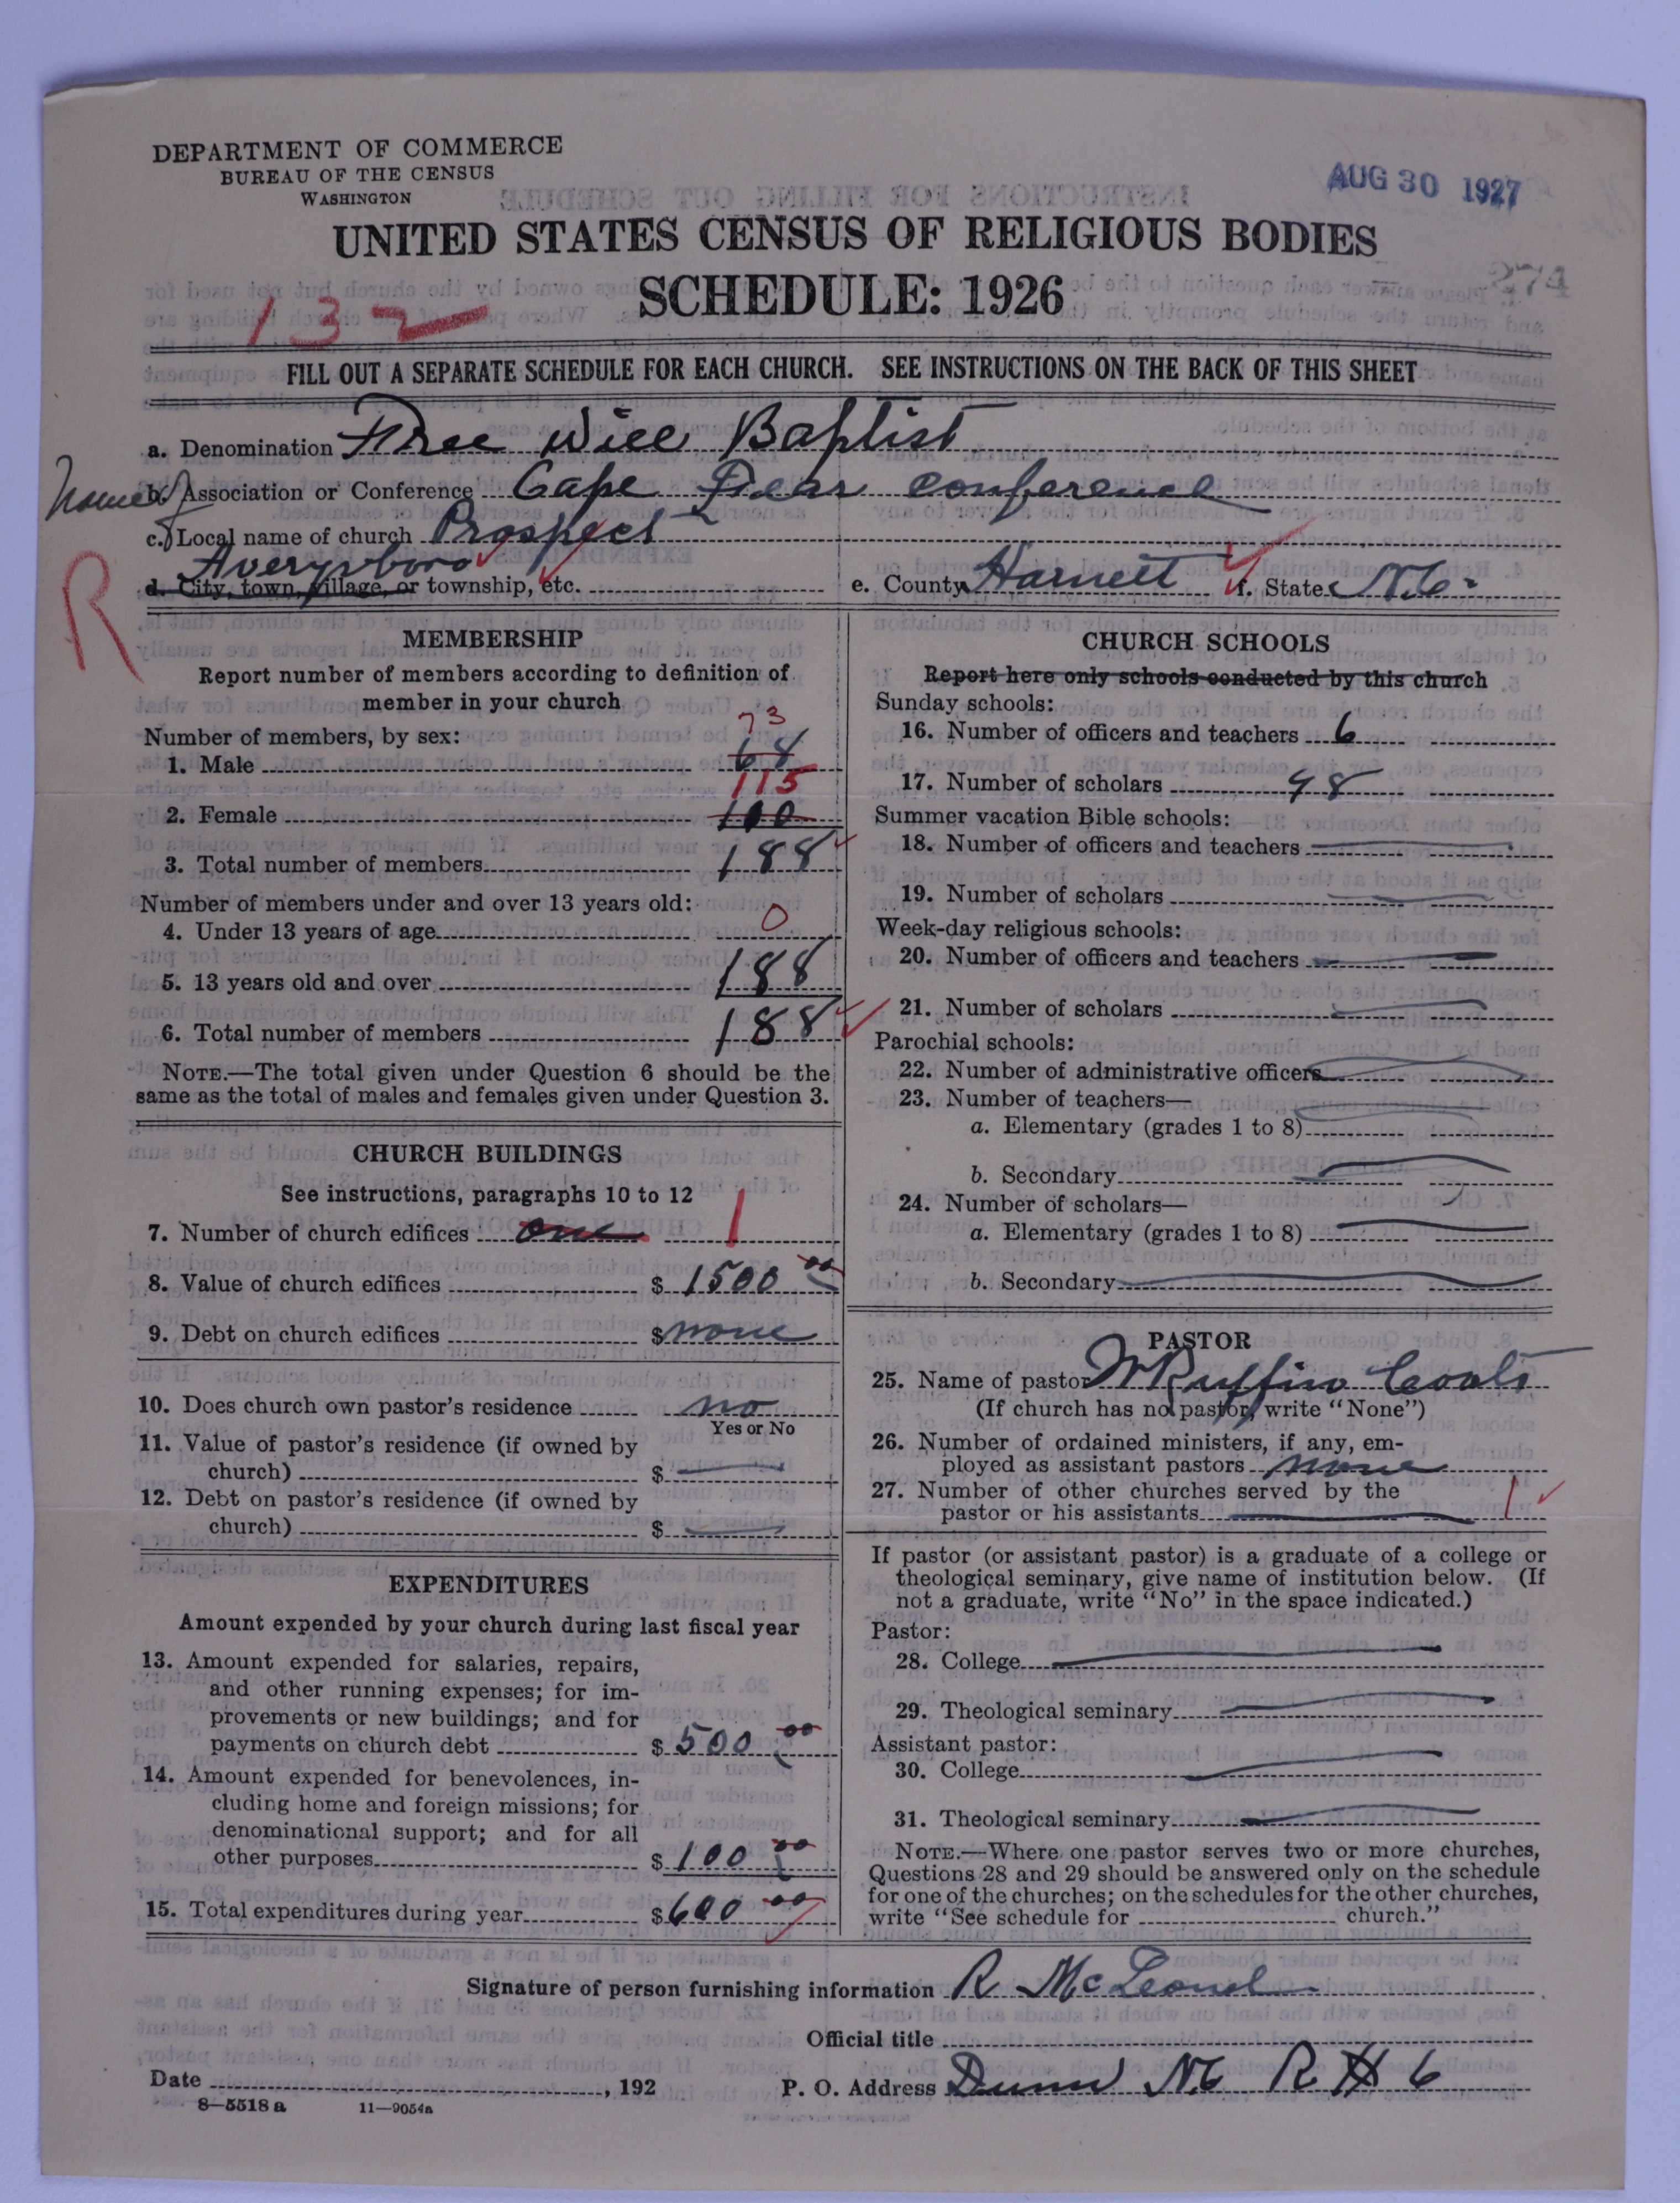 DEPARTMENT OF COMMERCE
BUREAU OF THE CENSUS
WASHINGTON
AUG 30 1927
UNITED STATES CENSUS OF RELIGIOUS BODIES
SCHEDULE: 1926
274
132
FILL OUT A SEPARATE SCHEDULE FOR EACH CHURCH. SEE INSTRUCTIONS ON THE BACK OF THIS SHEET
a. Denomination Free Will Baptist
b. Association or Conference Cape Fear conference
c. Local name of church Prospect
Averysboro
d. City, town, village, or township, etc.
e. County Harnett f. State N.C.
R
MEMBERSHIP
Report number of members according to definition of
member in your church
Number of members, by sex:
73
1. Male 68
115
2. Female 100
3. Total number of members 188
Number of members under and over 13 years old:
4. Under 13 years of age 0
5. 13 years old and over 188
6. Total number of members 188
NOTE.—The total given under Question 6 should be the
same as the total of males and females given under Question 3.
CHURCH BUILDINGS
See instructions, paragraphs 10 to 12
7. Number of church edifices one 1
8. Value of church edifices $ 1500 00
9. Debt on church edifices $ none
10. Does church own pastor's residence no
Yes or No
11. Value of pastor's residence (if owned by
church) $
12. Debt on pastor's residence (if owned by
church) $
EXPENDITURES
Amount expended by your church during last fiscal year
13. Amount expended for salaries, repairs,
and other running expenses; for im-
provements or new buildings; and for
payments on church debt $ 500 00
14. Amount expended for benevolences, in-
cluding home and foreign missions; for
denominational support; and for all
other purposes $ 100 00
15. Total expenditures during year $ 600 00
CHURCH SCHOOLS
Report here only schools conducted by this church
Sunday schools:
16. Number of officers and teachers 6
17. Number of scholars 98
Summer vacation Bible schools:
18. Number of officers and teachers
19. Number of scholars
Week-day religious schools:
20. Number of officers and teachers
21. Number of scholars
Parochial schools:
22. Number of administrative officers
23. Number of teachers—
a. Elementary (grades 1 to 8)
b. Secondary
24. Number of scholars—
a. Elementary (grades 1 to 8)
b. Secondary
PASTOR
25. Name of pastor W Ruffin Coats
(If church has no pastor, write "None")
26. Number of ordained ministers, if any, em-
ployed as assistant pastors none
27. Number of other churches served by the
pastor or his assistants 1
If pastor (or assistant pastor) is a graduate of a college or
theological seminary, give name of institution below. (If
not a graduate, write "No" in the space indicated.)
Pastor:
28. College
29. Theological seminary
Assistant pastor:
30. College
31. Theological seminary
NOTE.—Where one pastor serves two or more churches,
Questions 28 and 29 should be answered only on the schedule
for one of the churches; on the schedules for the other churches,
write "See schedule for church."
Signature of person furnishing information R McLeod
Official title
Date , 192
P. O. Address Dunn N.C R # 6
8—5518 a 11—9054a